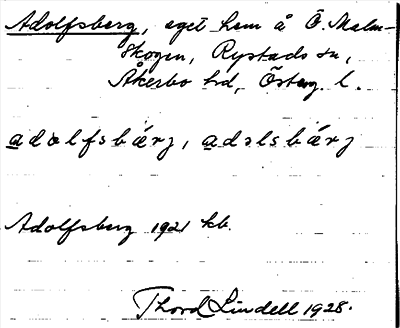 Adolfsberg, eget hem å Ö. Malm-
skogen, Rystads sn,
Åkerbo hd, Österg. l.
adolfsbærj, adəlsbærj
Adolfsberg 1921 kb.
Thord Lindell 1928.